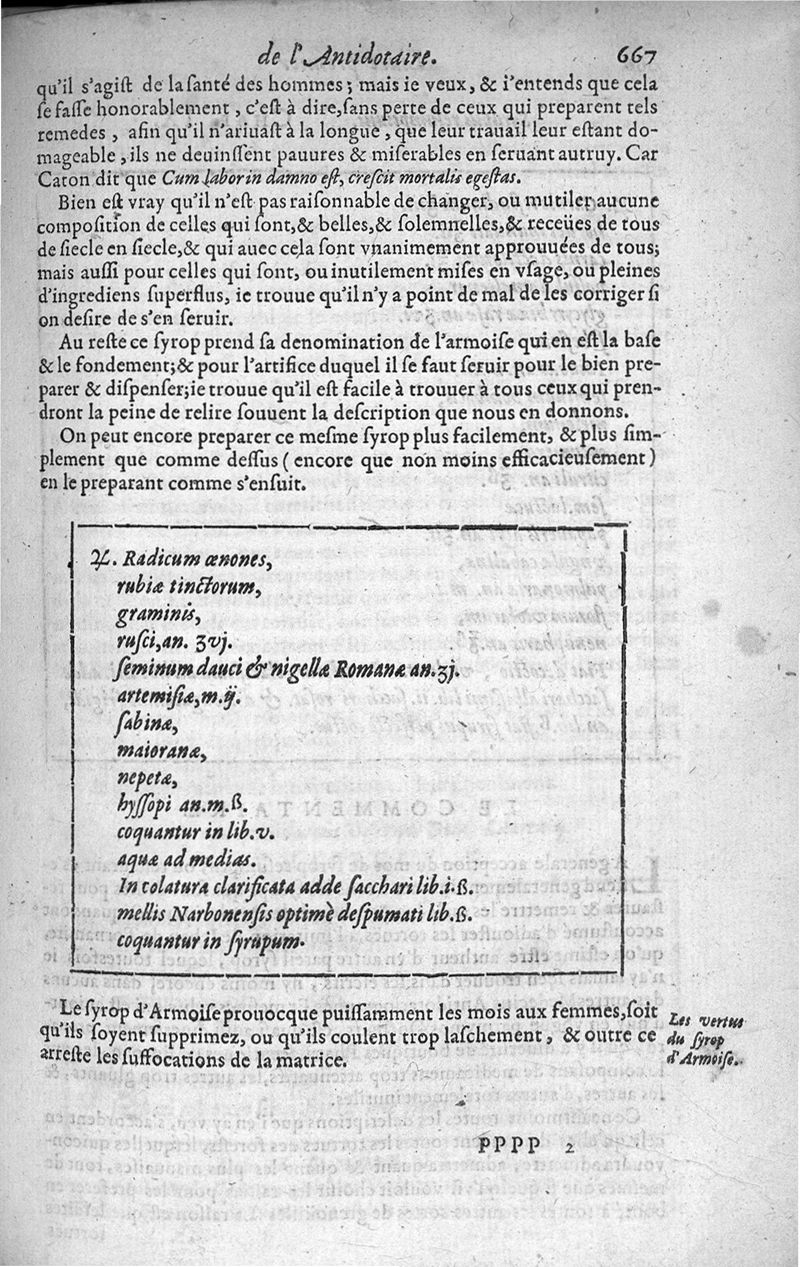 de l'Antidotaire. 667
qu'il s'agiſt de la ſanté des hommes; mais ie veux, & i'entends que cela
ſe faſſe honorablement, c'eſt à dire, ſans perte de ceux qui preparent tels
remedes, afin qu'il n'ariuaſt à la longue, que leur trauail leur eſtant do-
mageable, ils ne deuinſſent pauures & miſerables en ſeruant autruy. Car
Caton dit que Cum labor in damno eſt, creſcit mortalis egeſtas.
Bien eſt vray qu'il n'eſt pas raiſonnable de changer, ou mutiler aucune
compoſition de celles qui ſont, & belles, & ſolemnelles, & receües de tous
de ſiecle en ſiecle, & qui auec cela ſont vnanimement approuuées de tous;
mais auſſi pour celles qui ſont, ou inutilement miſes en vſage, ou pleines
d'ingrediens ſuperflus, ie trouue qu'il n'y a point de mal de les corriger ſi
on deſire de s'en ſeruir.
Au reſte ce ſyrop prend ſa denomination de l'armoiſe qui en eſt la baſe
& le fondement; & pour l'artifice duquel il ſe faut ſeruir pour le bien pre-
parer & diſpenſer; ie trouue qu'il eſt facile à trouuer à tous ceux qui pren-
dront la peine de relire ſouuent la deſcription que nous en donnons.
On peut encore preparer ce meſme ſyrop plus facilement, & plus ſim-
plement que comme deſſus (encore que non moins efficacieuſement)
en le preparant comme s'enſuit.
♃. Radicum œnones,
rubiæ tinctorum,
graminis,
ruſci, an. ʒvj.
ſeminum dauci & nigellæ Romanæ an. ʒj.
artemiſiæ, m. ij.
ſabinæ,
maioranæ,
nepetæ,
hyſſopi an. m. ß.
coquantur in lib. v.
aquæ ad medias.
In colatura clarificata adde ſacchari lib. i. ß.
mellis Narbonenſis optimè deſpumati lib. ß.
coquantur in ſyrupum.
Le ſyrop d'Armoiſe prouocque puiſſamment les mois aux femmes, ſoit
qu'ils ſoyent ſupprimez, ou qu'ils coulent trop laſchement, & outre ce
arreſte les ſuffocations de la matrice.
Les vertus
du ſyrop
d'Armoiſe.
PPPP 2